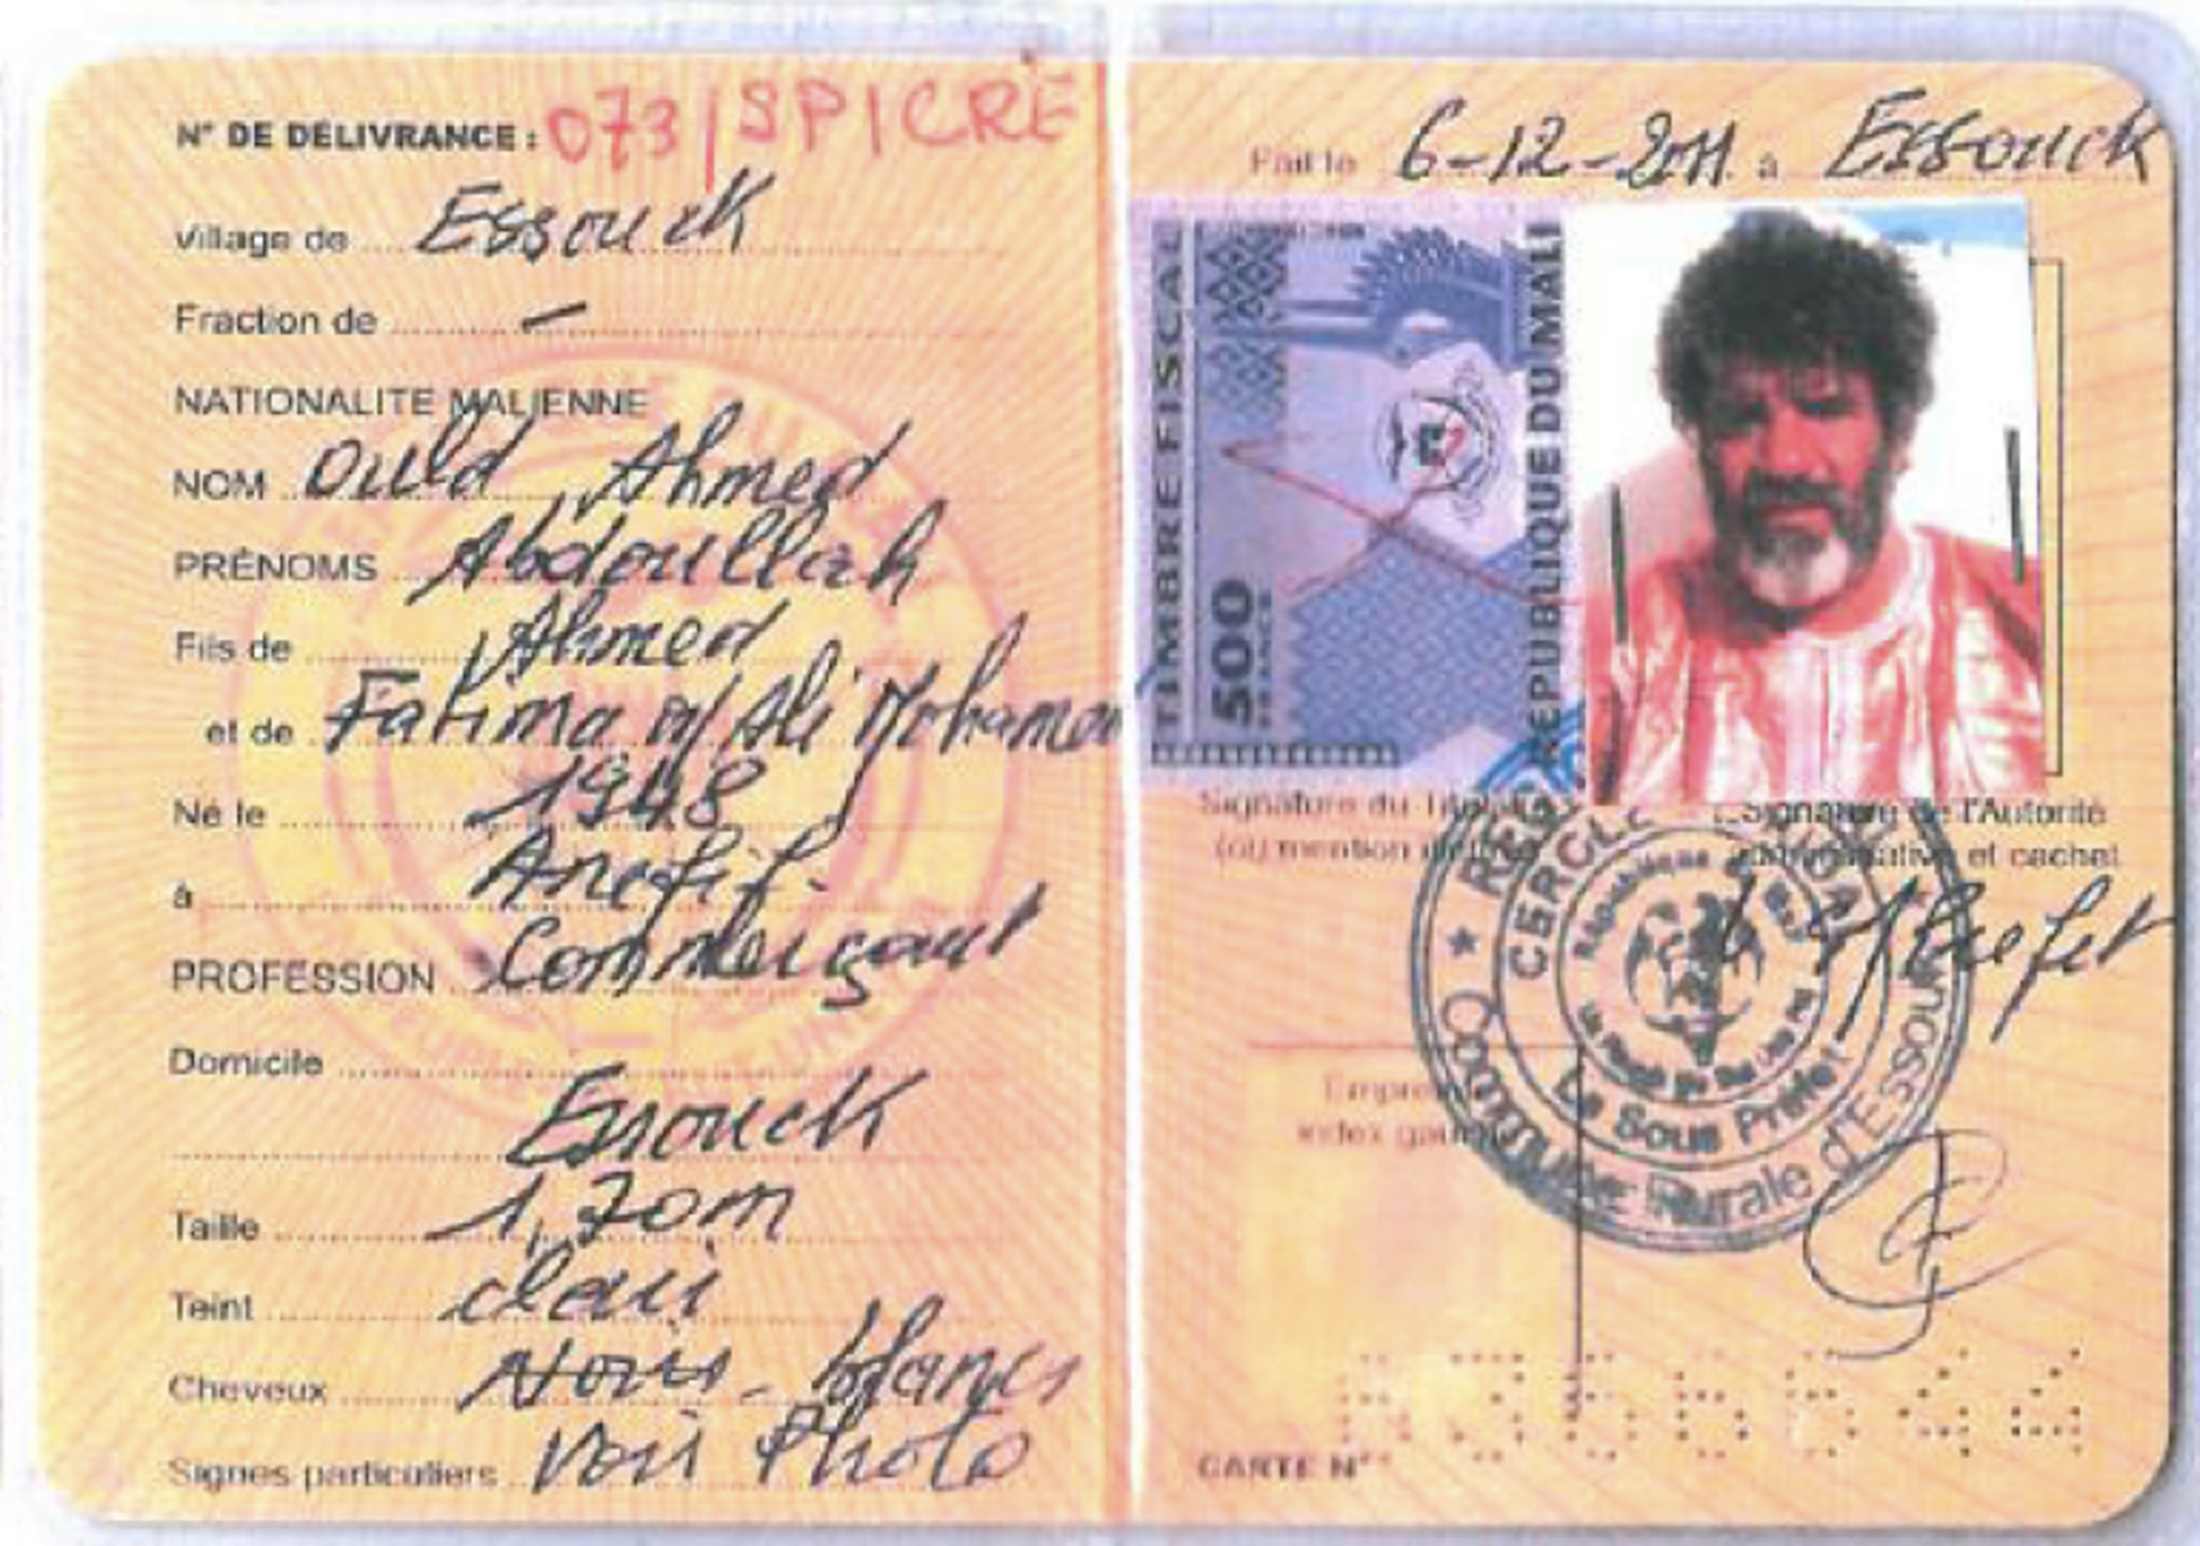 N° DE DÉLIVRANCE : 073/SP/CRE
Village de Essouck
Fraction de —
NATIONALITE MALIENNE
NOM Ould Ahmed
PRÉNOMS Abdoullah
Fils de Ahmed
et de Fatima w/ Ali Mohamed
Né le 1948
à Anefif
PROFESSION Commerçant
Domicile
Essouck
Taille 1,70m
Teint clair
Cheveux Noirs - blancs
Signes particuliers Voir Photo
Fait le 6-12-2011 à Essouck
TIMBRE FISCAL
500
FRANCS
REPUBLIQUE DU MALI
Signature du Titulaire
(ou) mention
Signature de l'Autorité
administrative et cachet
CERCLE
République
Un Peuple Un But Une Foi
Le Sous Préfet
Commune Rurale d'Essouk
Index gauche
CARTE N°